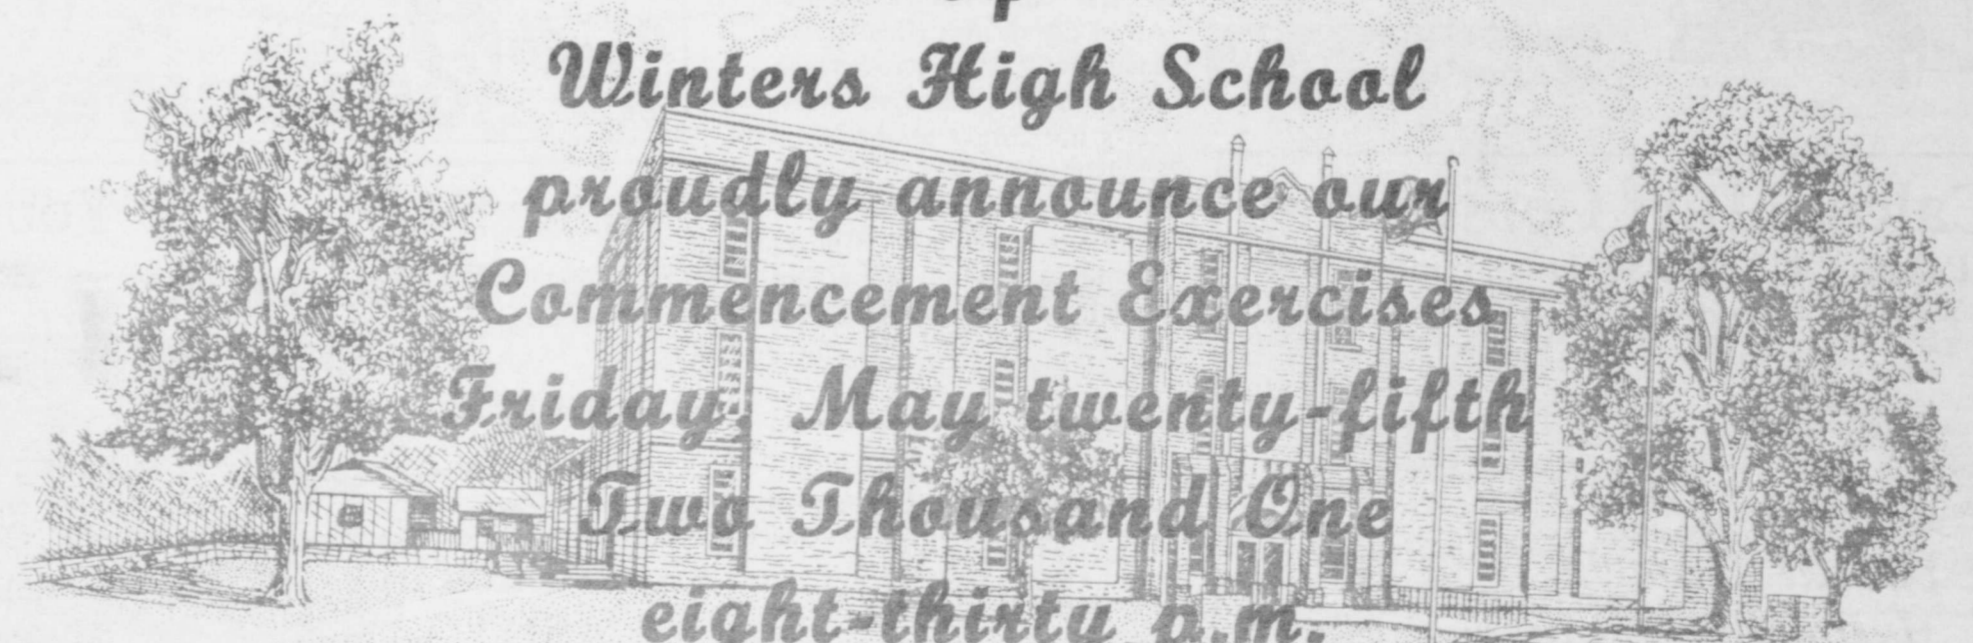 Winters High School
proudly announce our
Commencement Exercises
Friday, May twenty-fifth
Two Thousand One
eight-thirty p.m.